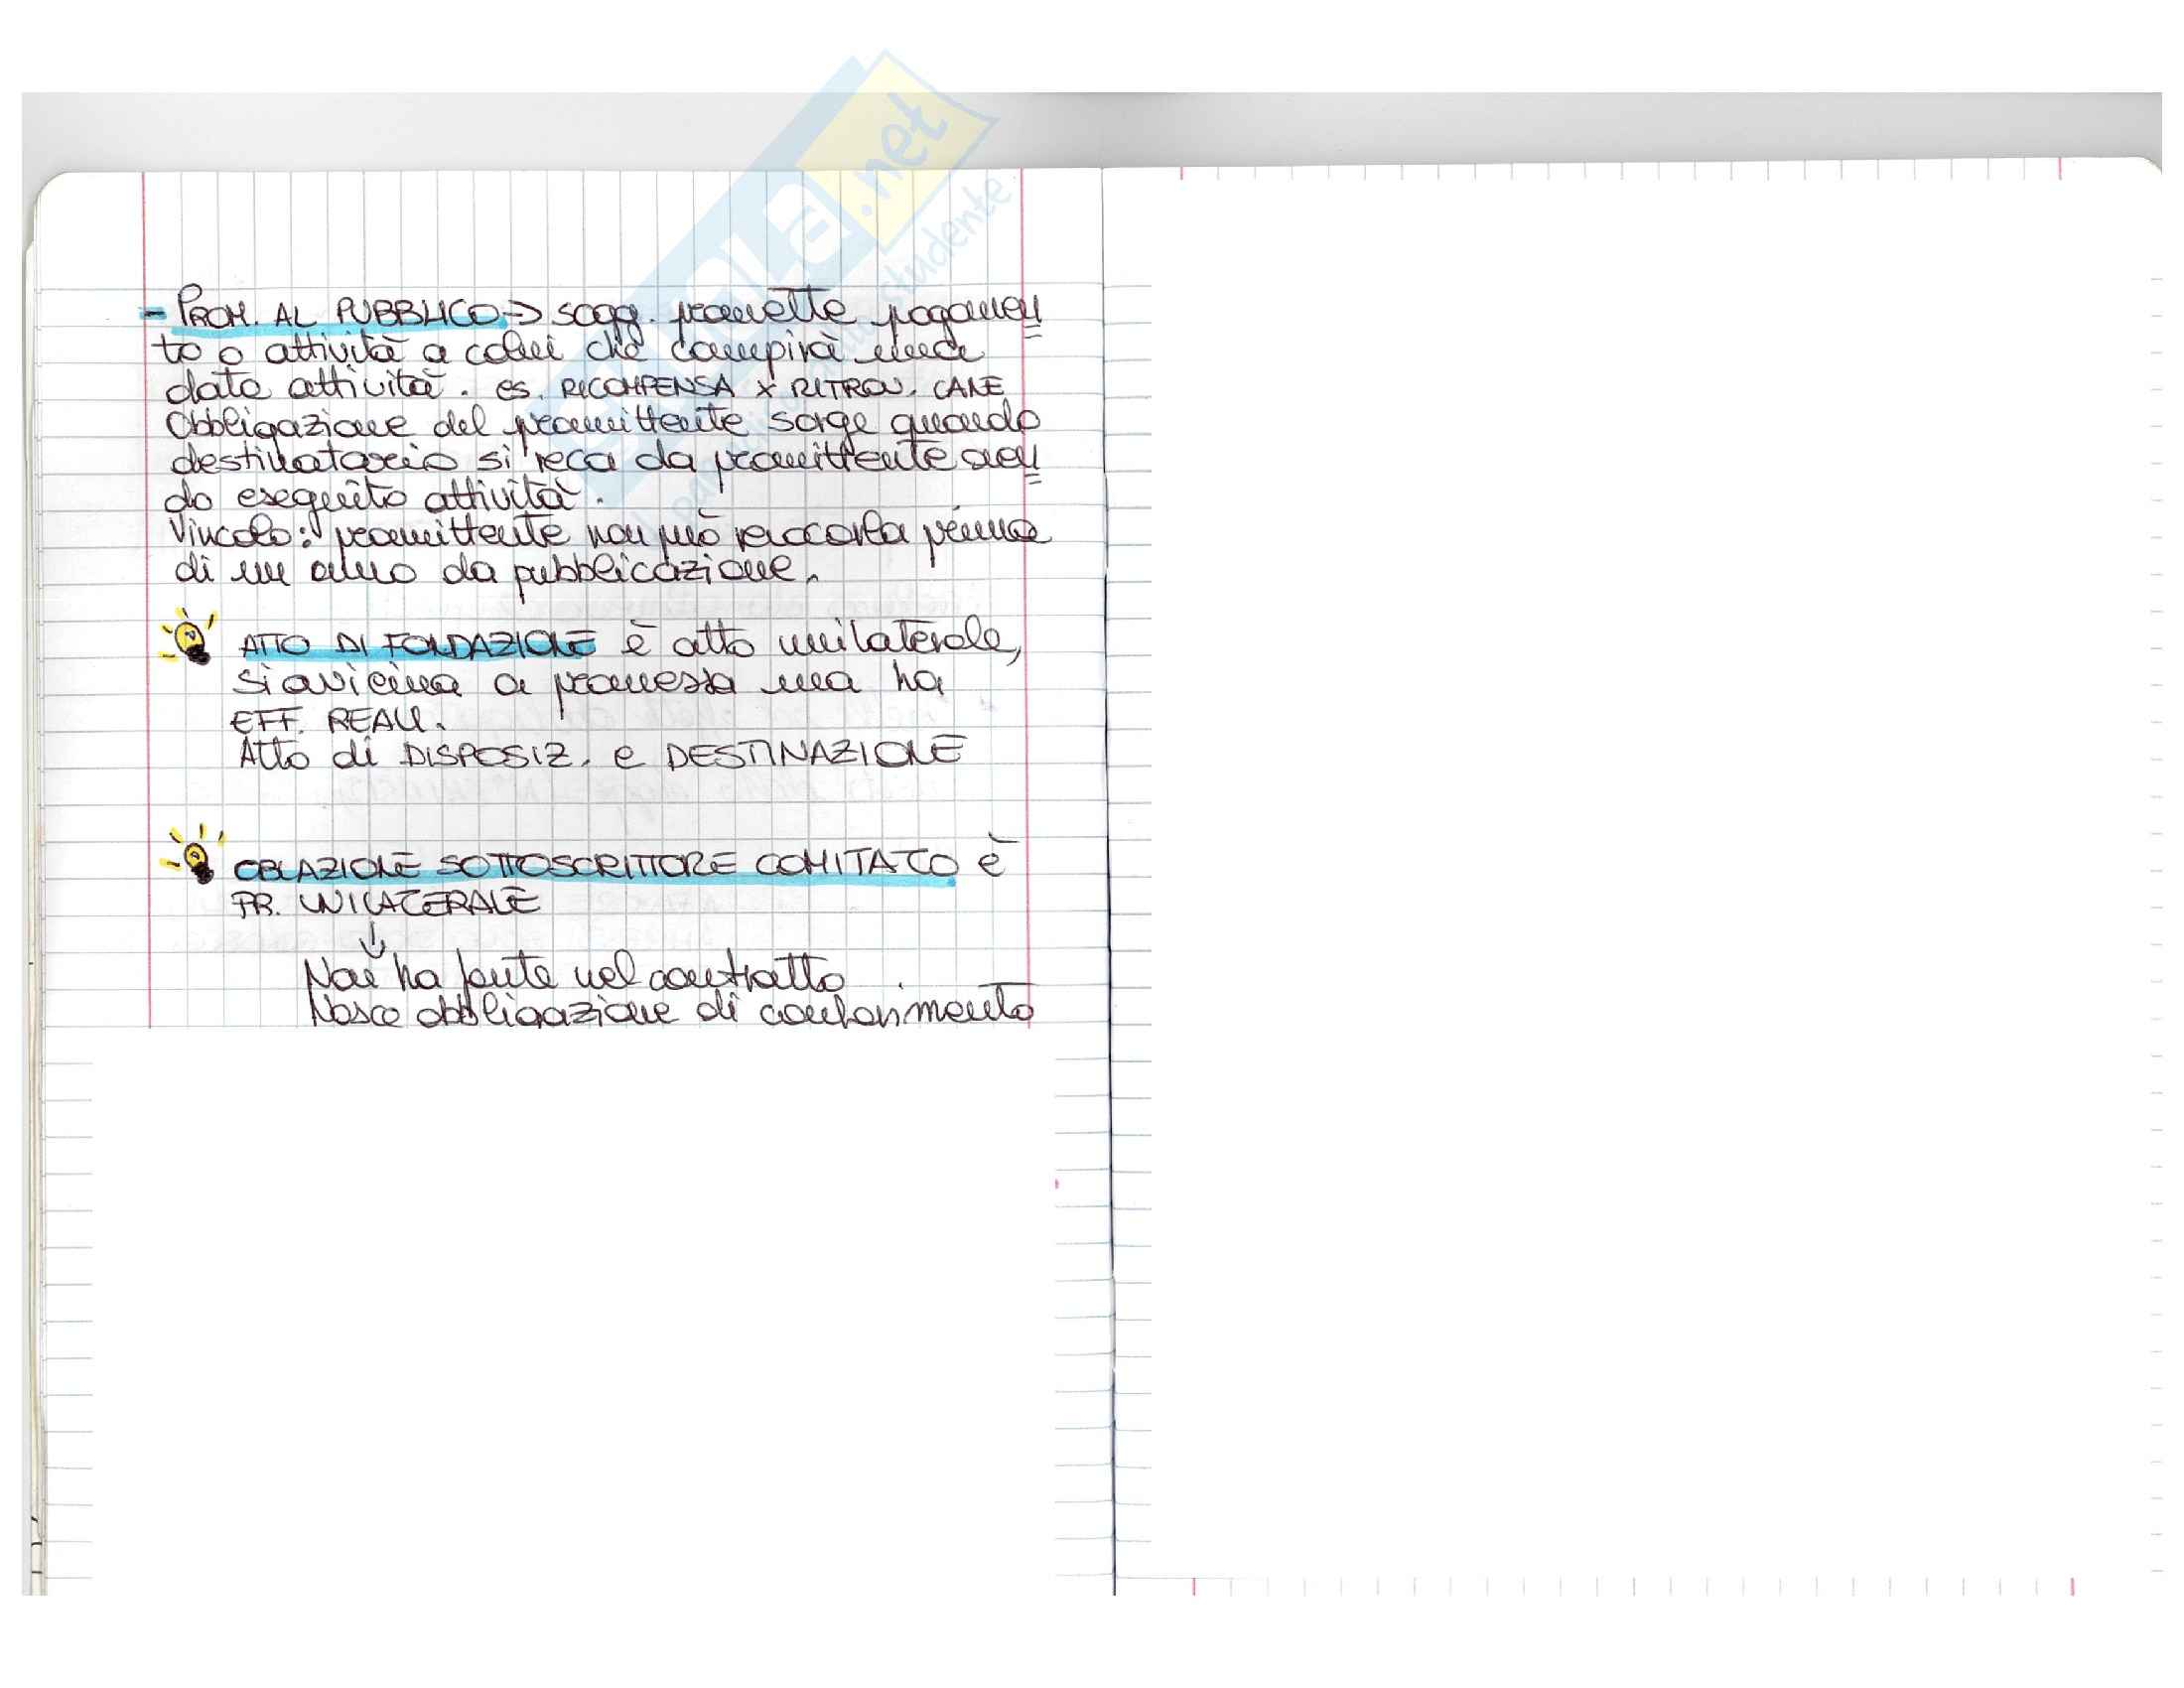 - PROM. AL PUBBLICO → sogg. promette pagamen
to o attività a colui che compirà una
data attività. es. RICOMPENSA x RITROV. CANE
Obbligazione del promittente sorge quando
destinatario si reca da promittente aven
do eseguito attività.
Vincolo: promittente non può revocarla prima
di un anno da pubblicazione.
ATTO DI FONDAZIONE è atto unilaterale,
si avicina a promessa ma ha
EFF. REALI.
Atto di DISPOSIZ. e DESTINAZIONE
OBLAZIONE SOTTOSCRITTORE COMITATO è
PR. UNILATERALE
↓
Non ha fonte nel contratto
Nasce obbligazione di conferimento
.net
studente